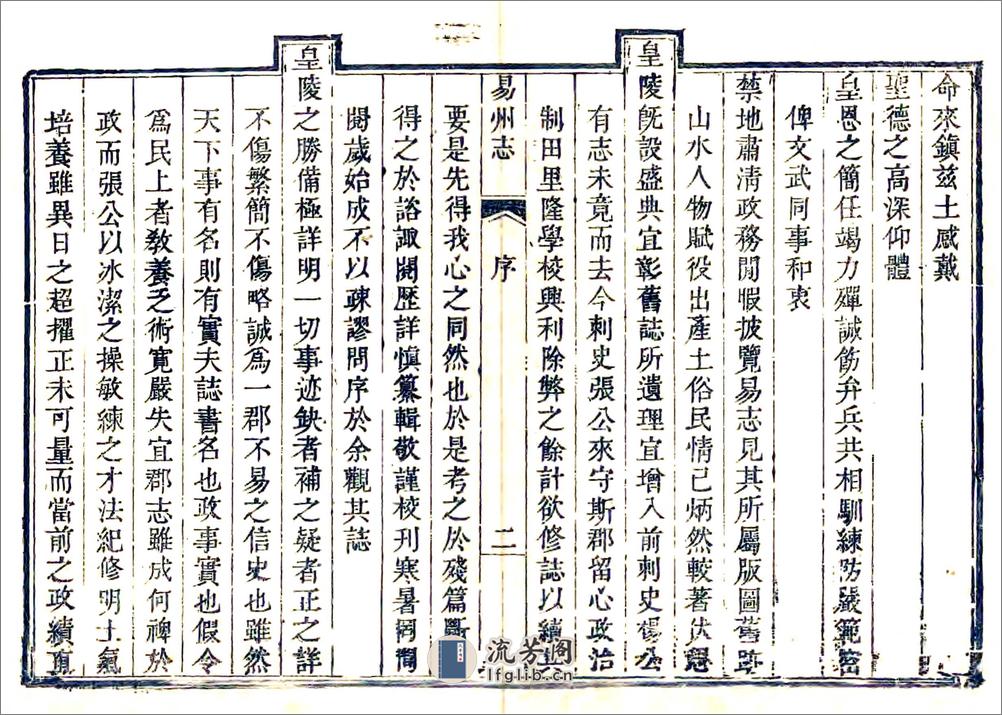 命來鎭兹土感戴
聖德之高深仰體
皇恩之簡任竭力殫誠飭弁兵共相馴練防嚴範密
俾文武同事和衷
禁地肅淸政務閒暇披覽易志見其所屬版圖舊跡
山水人物賦役出產土俗民情已炳然較著伏思
皇陵旣設盛典宜彰舊誌所遺理宜增入前刺史楊公
有志未竟而去今刺史張公來守斯郡留心政治
制田里隆學校興利除弊之餘計欲修誌以續其
易州志
序
二
要是先得我心之同然也於是考之於殘篇斷
得之於諮諏閱歷詳愼纂輯敬謹校刋寒暑罔間
閱歲始成不以疎謬問序於余觀其誌
皇陵之勝備極詳明一切事迹缺者補之疑者正之詳
不傷繁簡不傷略誠爲一郡不易之信史也雖然
天下事有名則有實夫誌書名也政事實也假令
爲民上者敎養乏術寬嚴失宜郡志雖成何裨於
政而張公以冰潔之操敏練之才法紀修明士氣
培養雖異日之超擢正未可量而當前之政績真
流芳阁
lfglib.cn